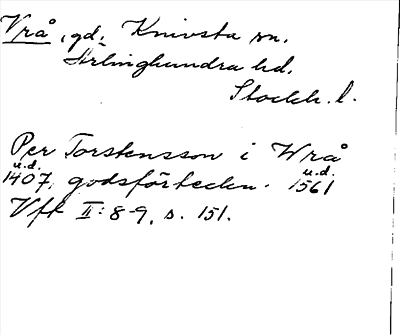 Vrå, gd, Knivsta sn.
Ärlinghundra hd.
Stockh. l.
Per Torstensson i Wrå
u.d. u.d.
1407, godsförteckn. 1561
Vft II: 8-9, s. 151.